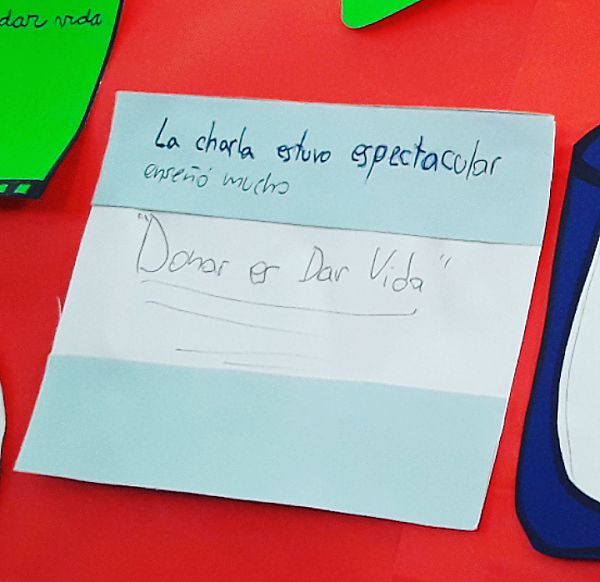 dar vida
La charla estuvo espectacular
enseñó mucho
"Donar es Dar Vida"